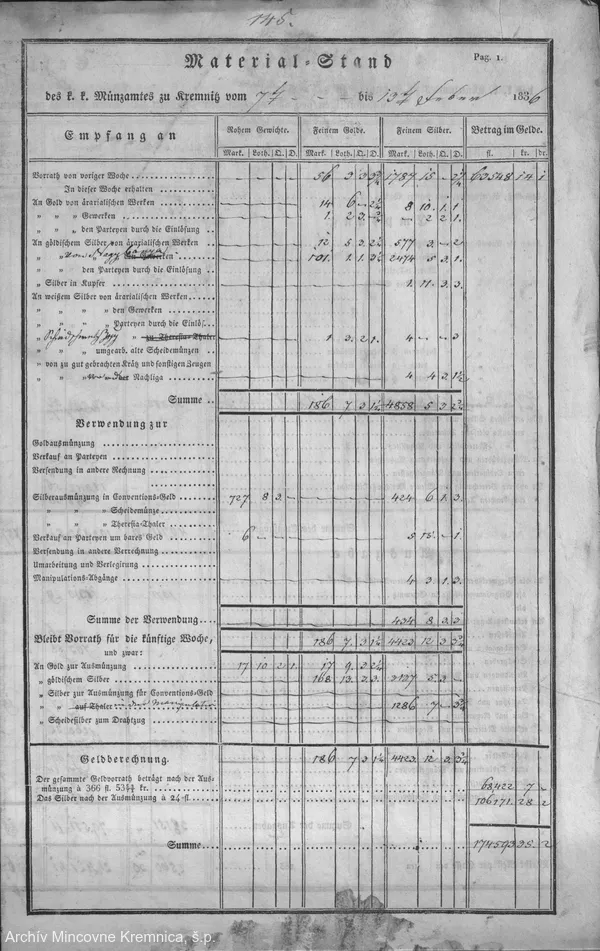 145.
Material-Stand
Pag. 1.
des k. k. Münzamtes zu Kremnitz vom 7t - - - bis 13t Feber 1836
Empfang an
Rohem Gewichte. Feinem Golde. Feinem Silber. Betrag im Gelde.
Mark. Loth. Q. D. Mark. Loth. Q. D. Mark. Loth. Q. D. fl. kr. dr.
Vorrath von voriger Woche 56 1787 15 63548 14 1
In dieser Woche erhalten
An Gold von ärarialischen Werken 14 6 8 10 1 1
„ „ „ Gewerken 1 2 3 2 2 1
„ „ „ den Parteyen durch die Einlösung
An göldischem Silber von ärarialischen Werken 12 5 3 577 3 2
„ „ 101 1 1 2474 5 3 1
„ „ den Parteyen durch die Einlösung
„ Silber in Kupfer 1 11 3 3
An weißem Silber von ärarialischen Werken
„ „ „ „ den Gewerken
„ „ „ „ Parteyen durch die Einlös
„ „ zu Theresia-Thaler 1 3 2 1 4 3
„ „ „ umgearb. alte Scheidemünzen
„ von zu gut gebrachten Krätz und sonstigen Zeugen
„ „ Nachliga 4 4 3 1½
Summe 186 7 3 1½ 4858 5 3 2¾
Verwendung zur
Goldausmünzung
Verkauf an Parteyen
Versendung in andere Rechnung
Silberausmünzung in Conventions-Geld 727 8 3 424 6 1 3
„ „ „ Scheidemünze
„ „ „ Theresia-Thaler
Verkauf an Parteyen um bares Geld 6 5 15 1
Versendung in andere Verrechnung
Umarbeitung und Verlegirung
Manipulations-Abgänge 4 3 1 3
Summe der Verwendung 434 8 3 3
Bleibt Vorrath für die künftige Woche, 186 7 3 1½ 4423 12 3 3¾
und zwar:
An Gold zur Ausmünzung 17 10 2 1 17 9 3 2½
„ göldischem Silber 168 13 3137 5 3
„ Silber zur Ausmünzung für Conventions-Geld
„ auf Thaler 1286 7 3¾
„ Scheidesilber zum Drahtzug
Geldberechnung. 186 7 3 1½ 4423 12 3 3¾
Der gesammte Geldvorrath beträgt nach der Aus-
münzung à 366 fl. kr. 68422 7
Das Silber nach der Ausmünzung à 24 fl. 106171 28 2
Summe 174593 35 2
Archív Mincovne Kremnica, š.p.